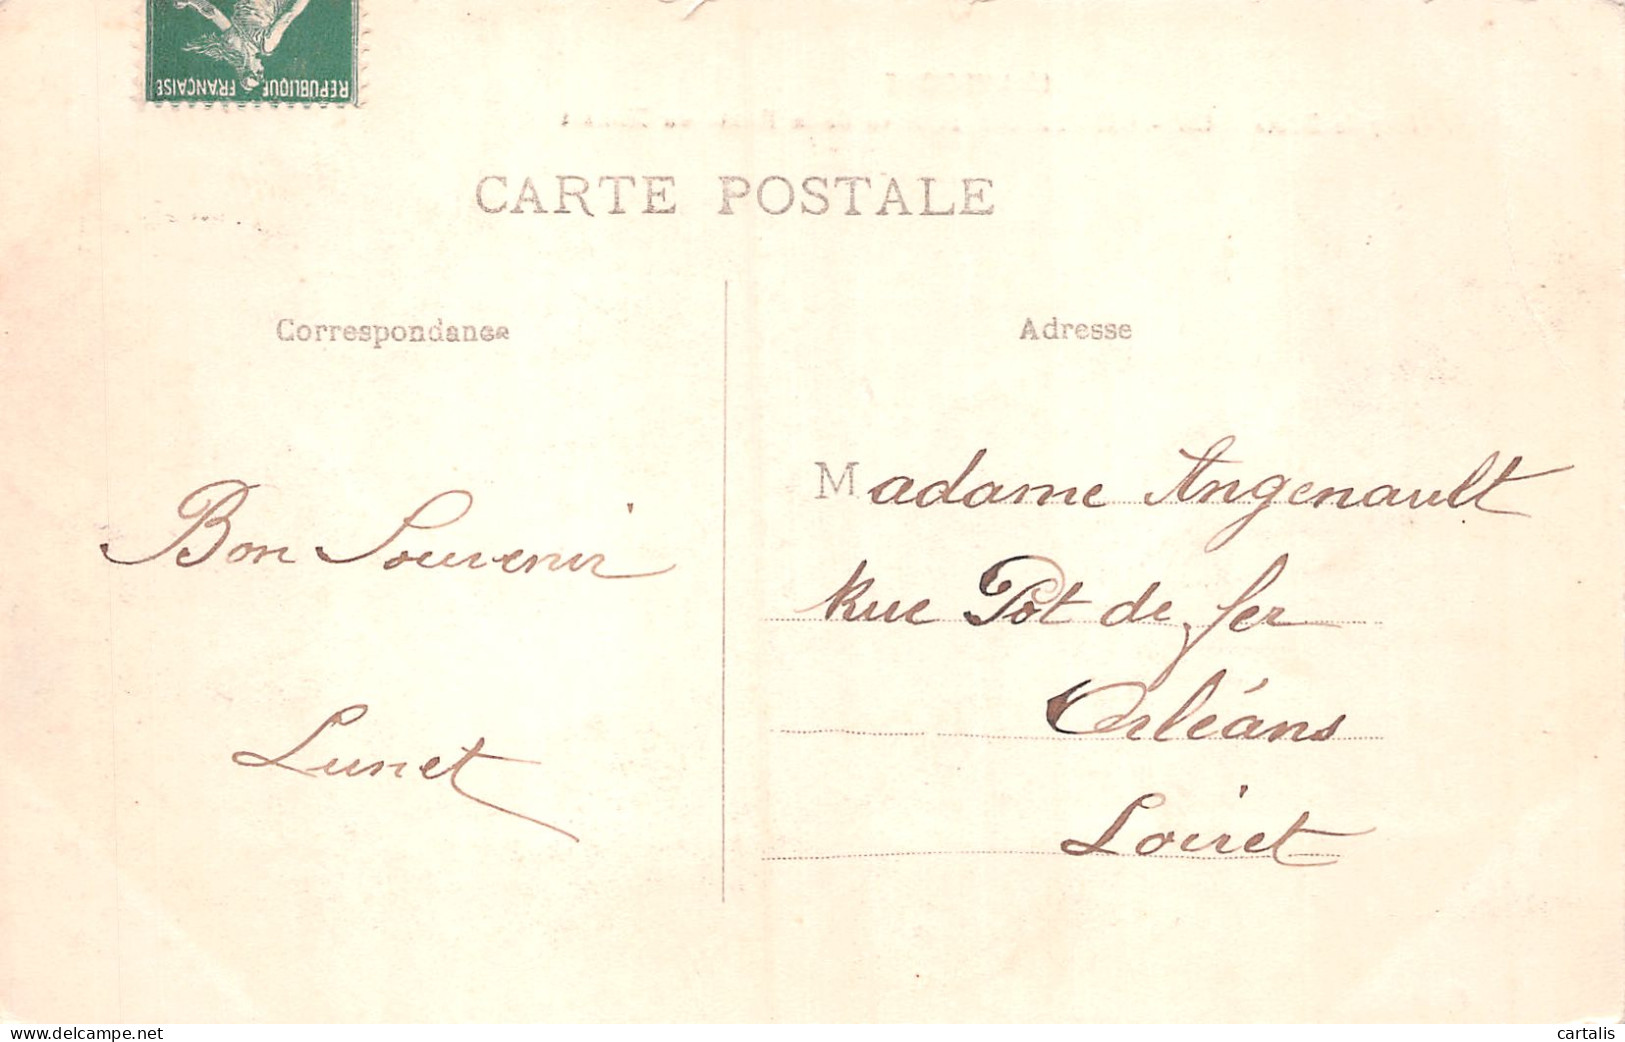 REPUBLIQUE FRANÇAISE
CARTE POSTALE
Correspondance
Adresse
Bon Souvenir
Lunet
Madame Angenault
Rue Pot de fer
Orléans
Loiret
www.delcampe.net
cartalis